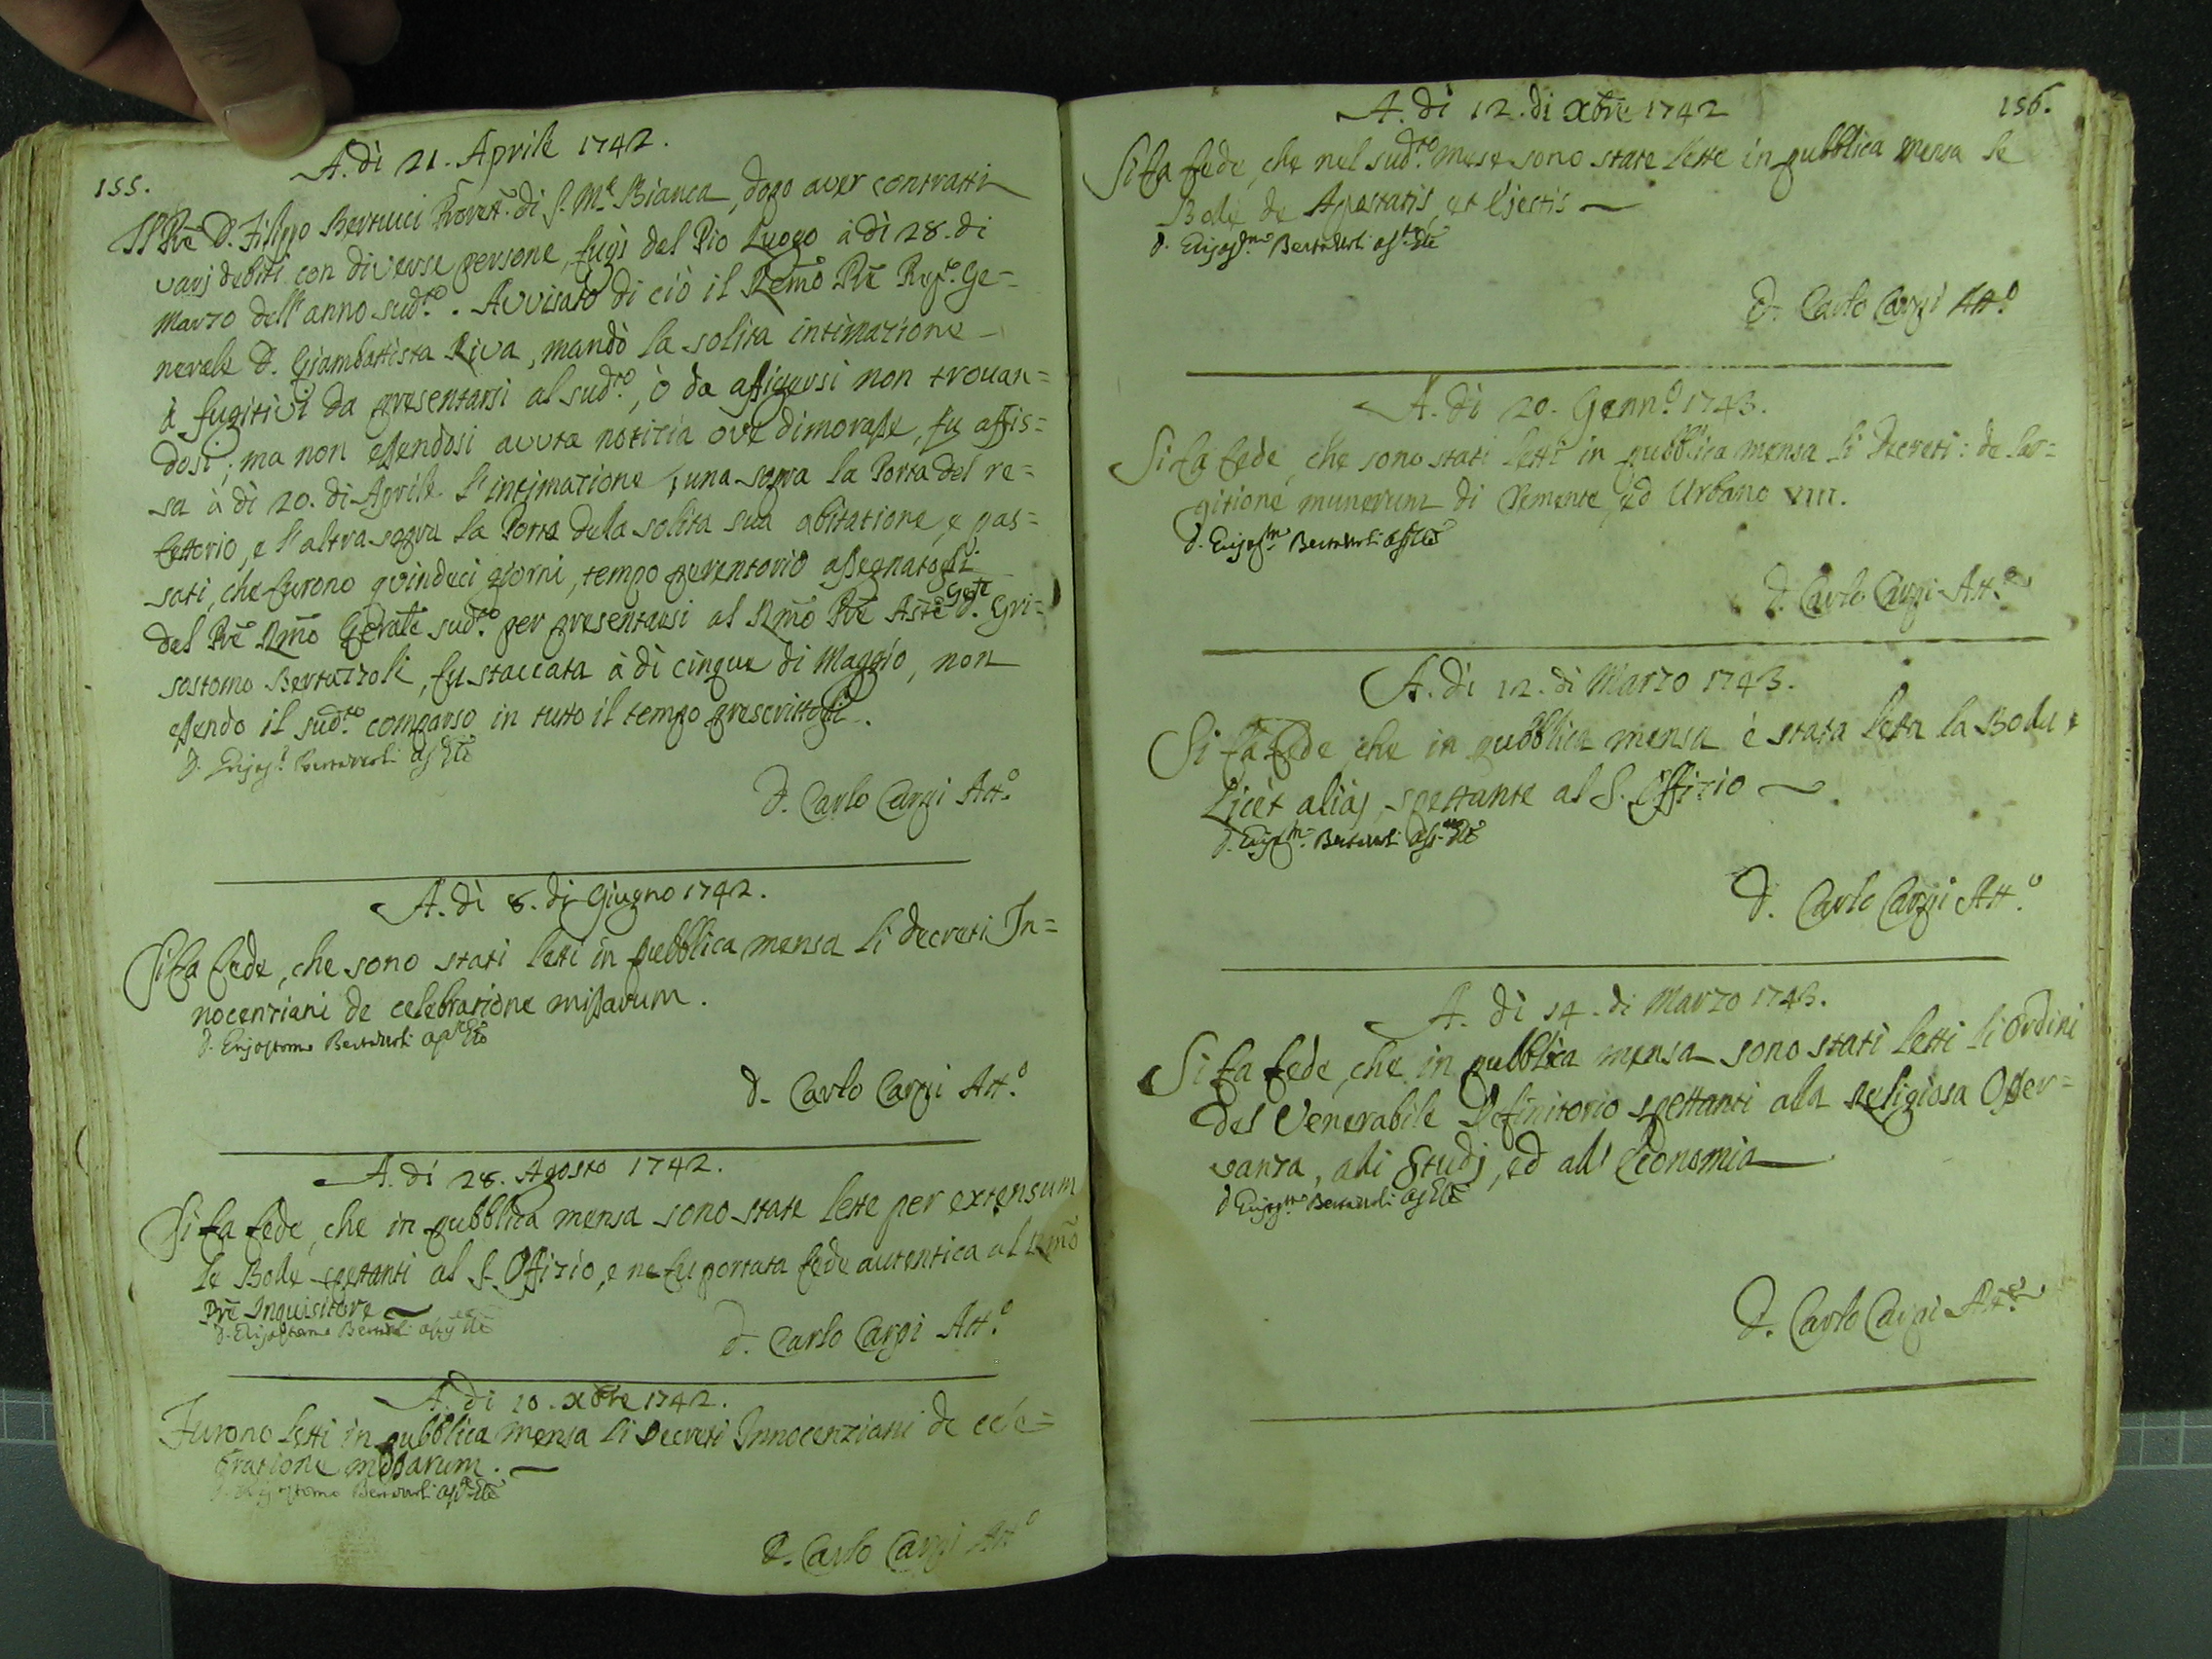 155.
A. dì 21. Aprile 1742.
Il Pre D. Filippo Bertucci Rorett. di S. Ma Bianca, dopo aver contratti
varj debiti con diverse persone, fugì dal Pio Luogo à dì 28. di
Marzo dell'anno sudto. Avvisato di ciò il Remo Pre Prepto. Ge=
nerale D. Giambattista Riva, mandò la solita intimazione
à fugitivi da presentarsi al sudto, ò da affigersi non trovan=
dosi; ma non essendosi avuta noticia ove dimorasse, fu affis=
sa à dì 20. di Aprile l'intimazione, una sopra la Porta del re=
fettorio, e l'altra sopra la Porta della solita sua abitatione, e pas=
sati, che furono quindeci giorni, tempo perentorio assegnatogli
dal Pre Rmo Gerale sudto per presentarsi al Rmo Pre Aste Gele D. Gri=
sostomo Bertazzoli, fu staccata à dì cinque di Maggio, non
essendo il sudto comparso in tutto il tempo prescrittogli.
D. Carlo Carpi Atto
A. dì 8. di Giugno 1742.
Si fa fede, che sono stati letti in pubblica mensa li decreti In=
nocenziani de celebratione missarum.
D. Grisostomo Bertazzoli
D. Carlo Carpi Atto
A. dì 28. Agosto 1742.
Si fa fede, che in pubblica mensa sono state lette per extensum
le Bolle spettanti al S. Offizio, e ne fu portata fede autentica al Rmo
Pre Inquisitore
D. Grisostomo Bertazzoli
D. Carlo Carpi Atto
A. dì 10. Xbre 1742.
Furono letti in pubblica mensa li Decreti Innocenziani de cele=
bratione missarum.
D. Grisostomo Bertazzoli
D. Carlo Carpi Atto
156.
A. dì 12. di Xbre 1742
Si fa fede, che nel sudto mese sono state lette in pubblica mensa le
Bolle de Apostatis, et Ejectis
D. Carlo Carpi Atto
A. dì 20. Genno 1743.
Si fa fede, che sono stati letti in pubblica mensa li Decreti: de lar=
gitione munerum di Clemente, ed Urbano VIII.
D. Carlo Carpi Atto
A. dì 12. di Marzo 1743.
Si fa fede, che in pubblica mensa è stata letta la Bolla
Licèt aliàs, spettante al S. Offizio
D. Carlo Carpi Atto
A. dì 14. di Marzo 1743.
Si fa fede, che in pubblica mensa sono stati letti li Ordini
del Venerabile Definitorio spettanti alla Religiosa Osser=
vanza, alli Studj, ed all'Economia
D. Carlo Carpi Atto